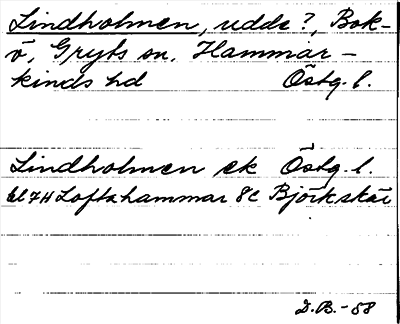 Lindholmen, udde?, Bok-
ö, Gryts sn, Hammar-
kinds hd Östg. l.
Lindholmen ek Östg. l.
bl 7H Loftahammar 8c Björkskär
D.B.-58